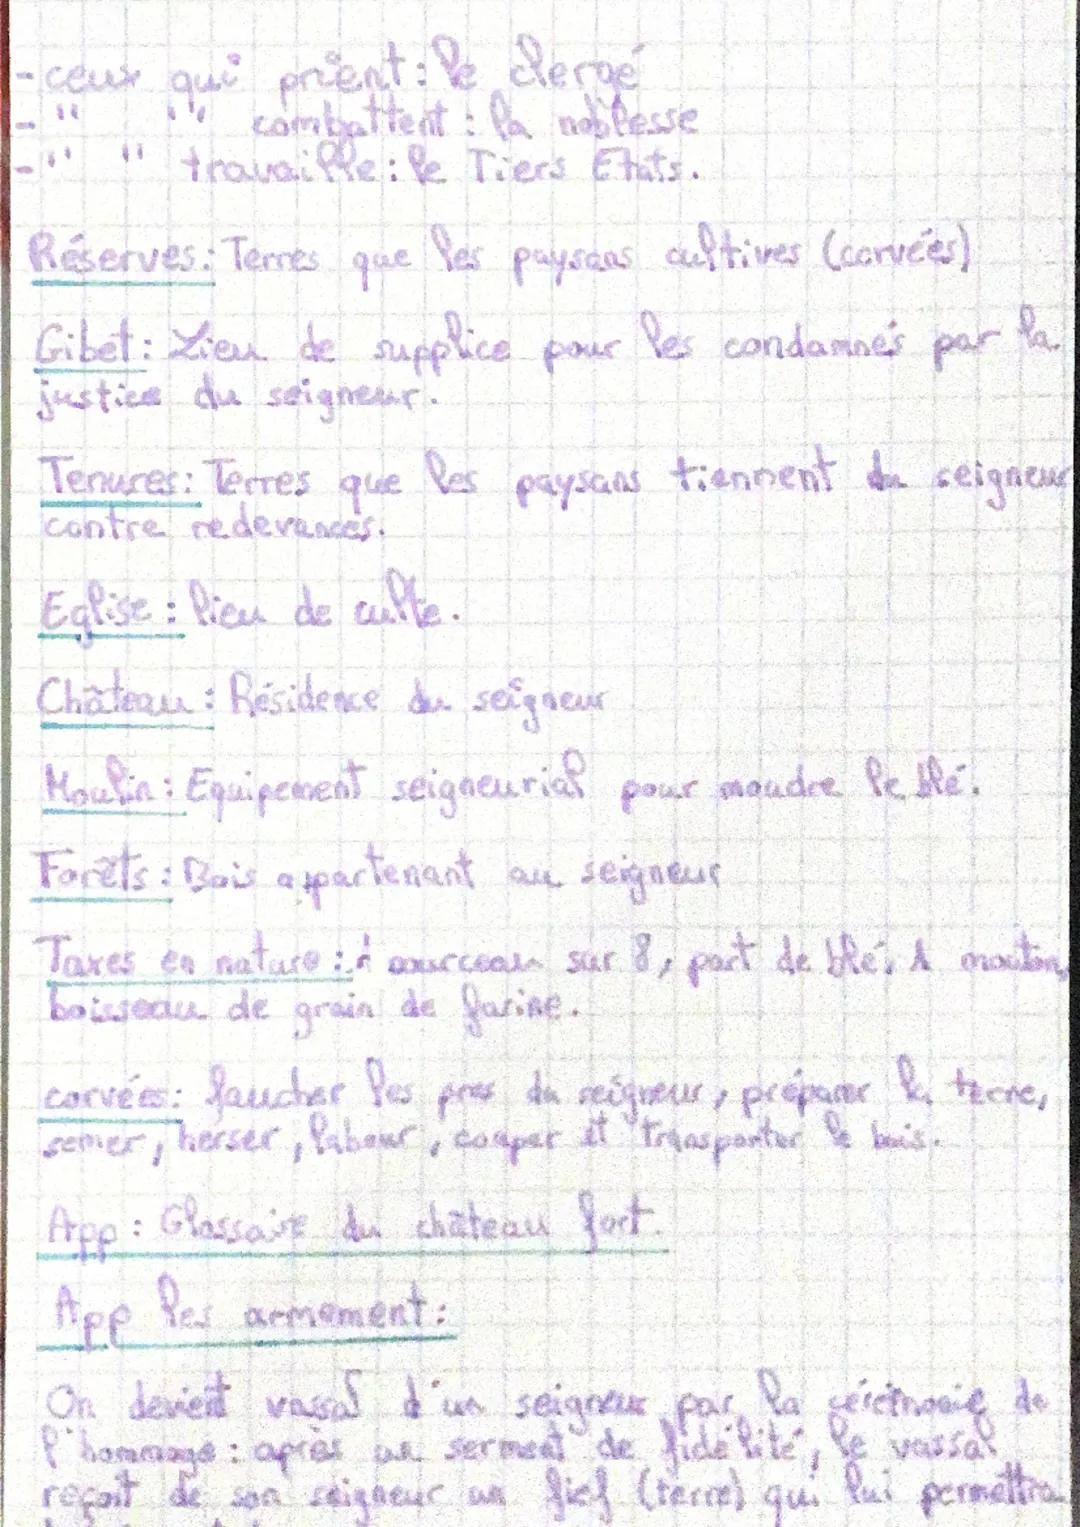 - ceux qui prient : le clergé
- " " combattent : la noblesse
- " " travaille : le Tiers Etats.
Réserves : Terres que les paysans cultives (corvées)
Gibet : Lieu de supplice pour les condamnés par la
justice du seigneur.
Tenures : Terres que les paysans tiennent du seigneur
contre redevances.
Eglise : lieu de culte.
Château : Résidence du seigneur
Moulin : Equipement seigneurial pour moudre le blé.
Forêts : Bois appartenant au seigneur
Taxes en nature : 1 pourceau sur 8, part de blé, 1 mouton,
boisseau de grain de farine.
corvées : faucher les prés du seigneur, préparer la terre,
semer, herser, labour, couper et transporter le bois.
App : Glossaire du château fort.
App les armement :
On devient vassal d'un seigneur par la cérémonie de
l'hommage : après un serment de fidélité, le vassal
reçoit de son seigneur un fief (terre) qui lui permettra